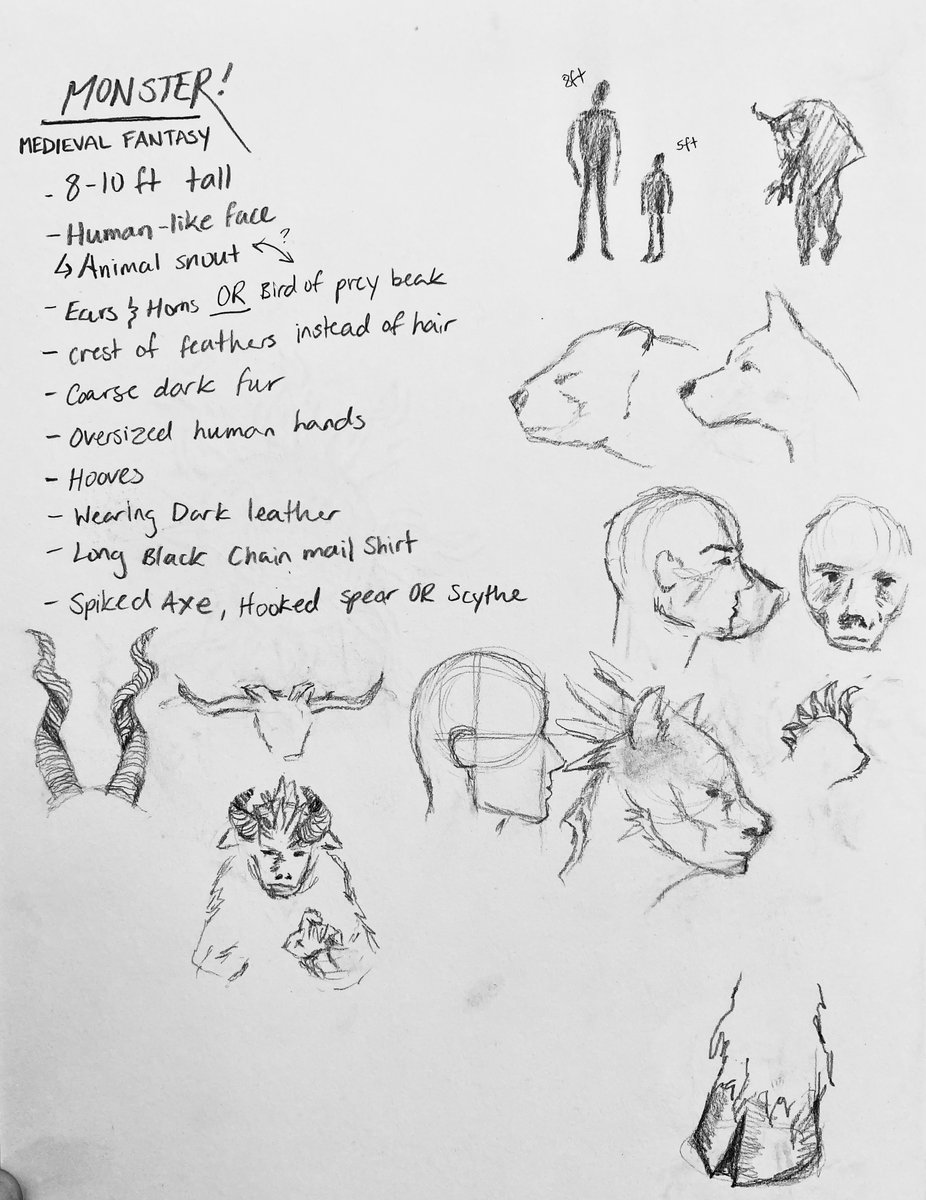 MONSTER!
MEDIEVAL FANTASY
- 8-10 ft tall
- Human-like face
↳ Animal snout ?
- Ears & Horns OR Bird of prey beak
- crest of feathers instead of hair
- Coarse dark fur
- Oversized human hands
- Hooves
- Wearing Dark leather
- Long Black Chain mail Shirt
- Spiked Axe, Hooked spear OR Scythe
8ft
5ft